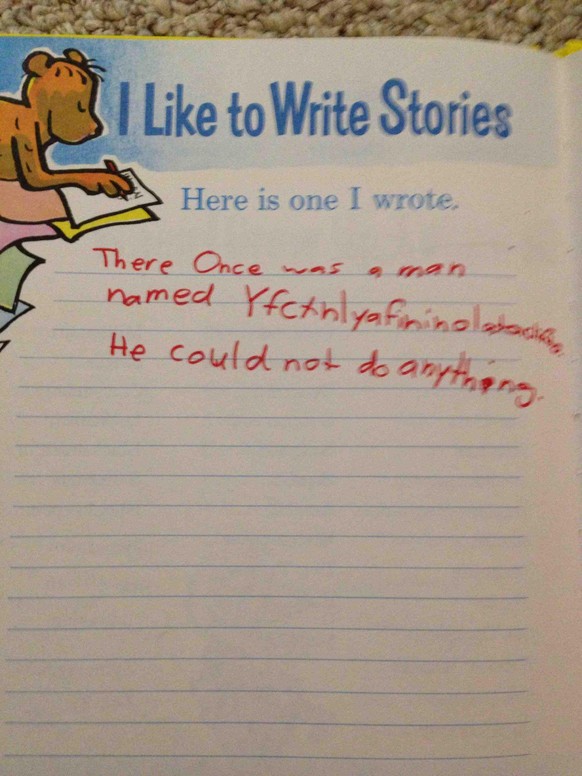 I Like to Write Stories
Here is one I wrote.
There Once was a man
named
He could not do anything.